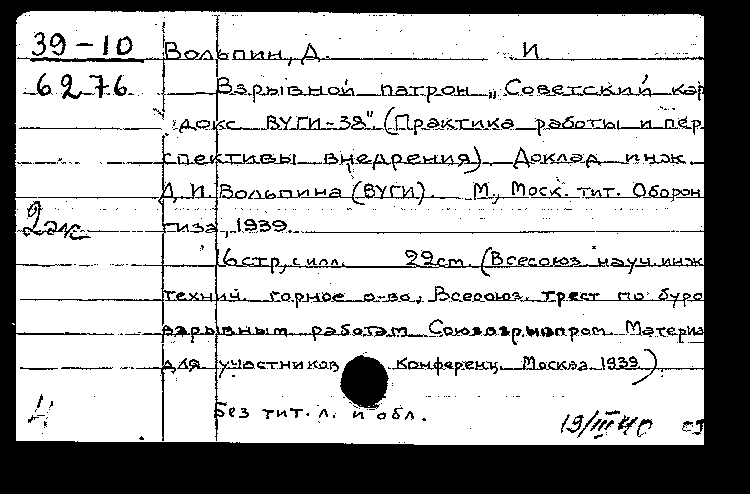 39-10 Вольпин, Д. И
6276 Взрывной патрон „Советский кар
докс ВУГИ-38". (Практика работы и пер
спективы внедрения). Доклад инж.
Д. И. Вольпина (ВУГИ). М., Моск. тит. Оборон
2 эк. гиза, 1939.
16 стр., с илл. 22 cm. (Всесоюз науч. инж
технич. горное о-во, Всесоюз. трест по буро
взрывным работам Союзвзрывпром. Материа
для участников Конференц. Москва. 1939).
Без тит. л. и обл.
4 19/III 40